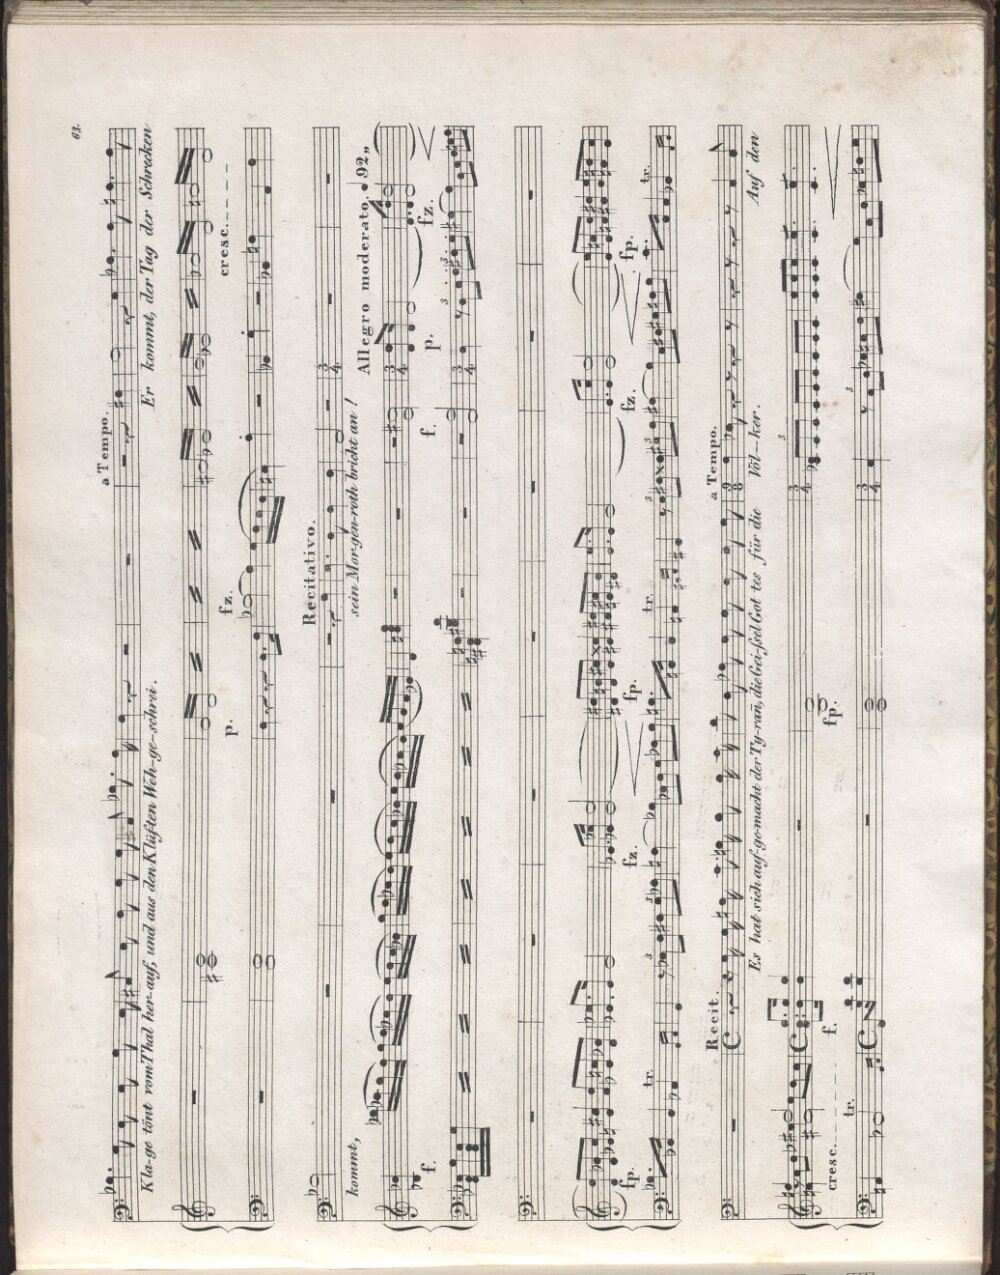 63.
a Tempo.
Kla-ge tönt vom Thal her-auf, und aus den Klüften Weh-ge-schrei. Er kommt, der Tag der Schrecken
p. fz. cresc.
Recitativo.
kommt, sein Mor-gen-roth bricht an!
Allegro moderato. 92,,
f. f. p. fz.
3 3
fp. tr. 3 3 fz. fp. tr. 3 fz. fp. tr.
Recit. a Tempo.
Es hat sich auf-ge-macht der Ty-rañ, die Gei-ßel Got tes für die Völ-ker. Auf den
cresc. f. fp. 3
tr. 3